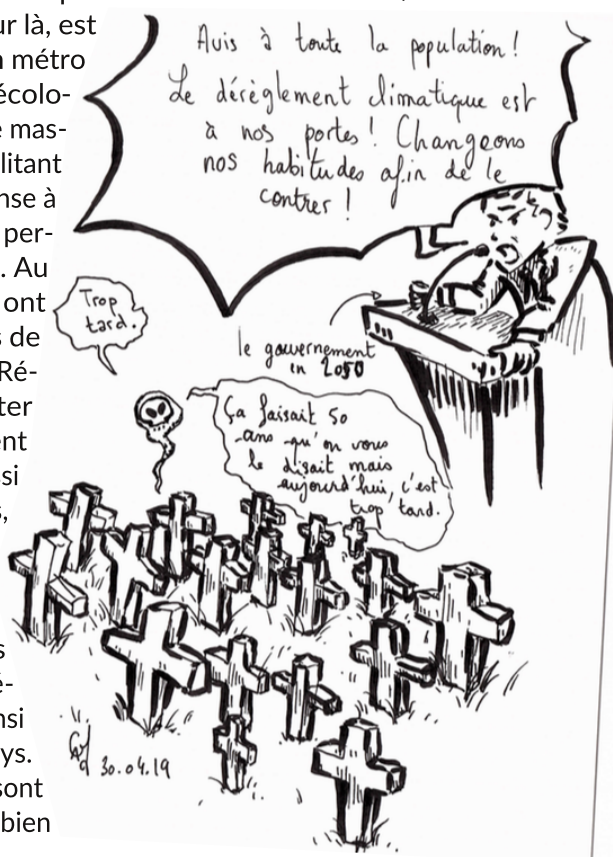 ur là, est
n métro
écolo-
e mas-
litant
nse à
per-
. Au
ont
s de
Ré-
ter
ent
ssi
s,
s
é-
nsi
ys.
sont
bien
Avis à toute la population !
Le dérèglement climatique est
à nos portes ! Changeons
nos habitudes afin de le
contrer !
Trop
tard.
le gouvernement
en 2050
Ça faisait 50
ans qu'on vous
le disait mais
aujourd'hui, c'est
trop tard.
30.04.19